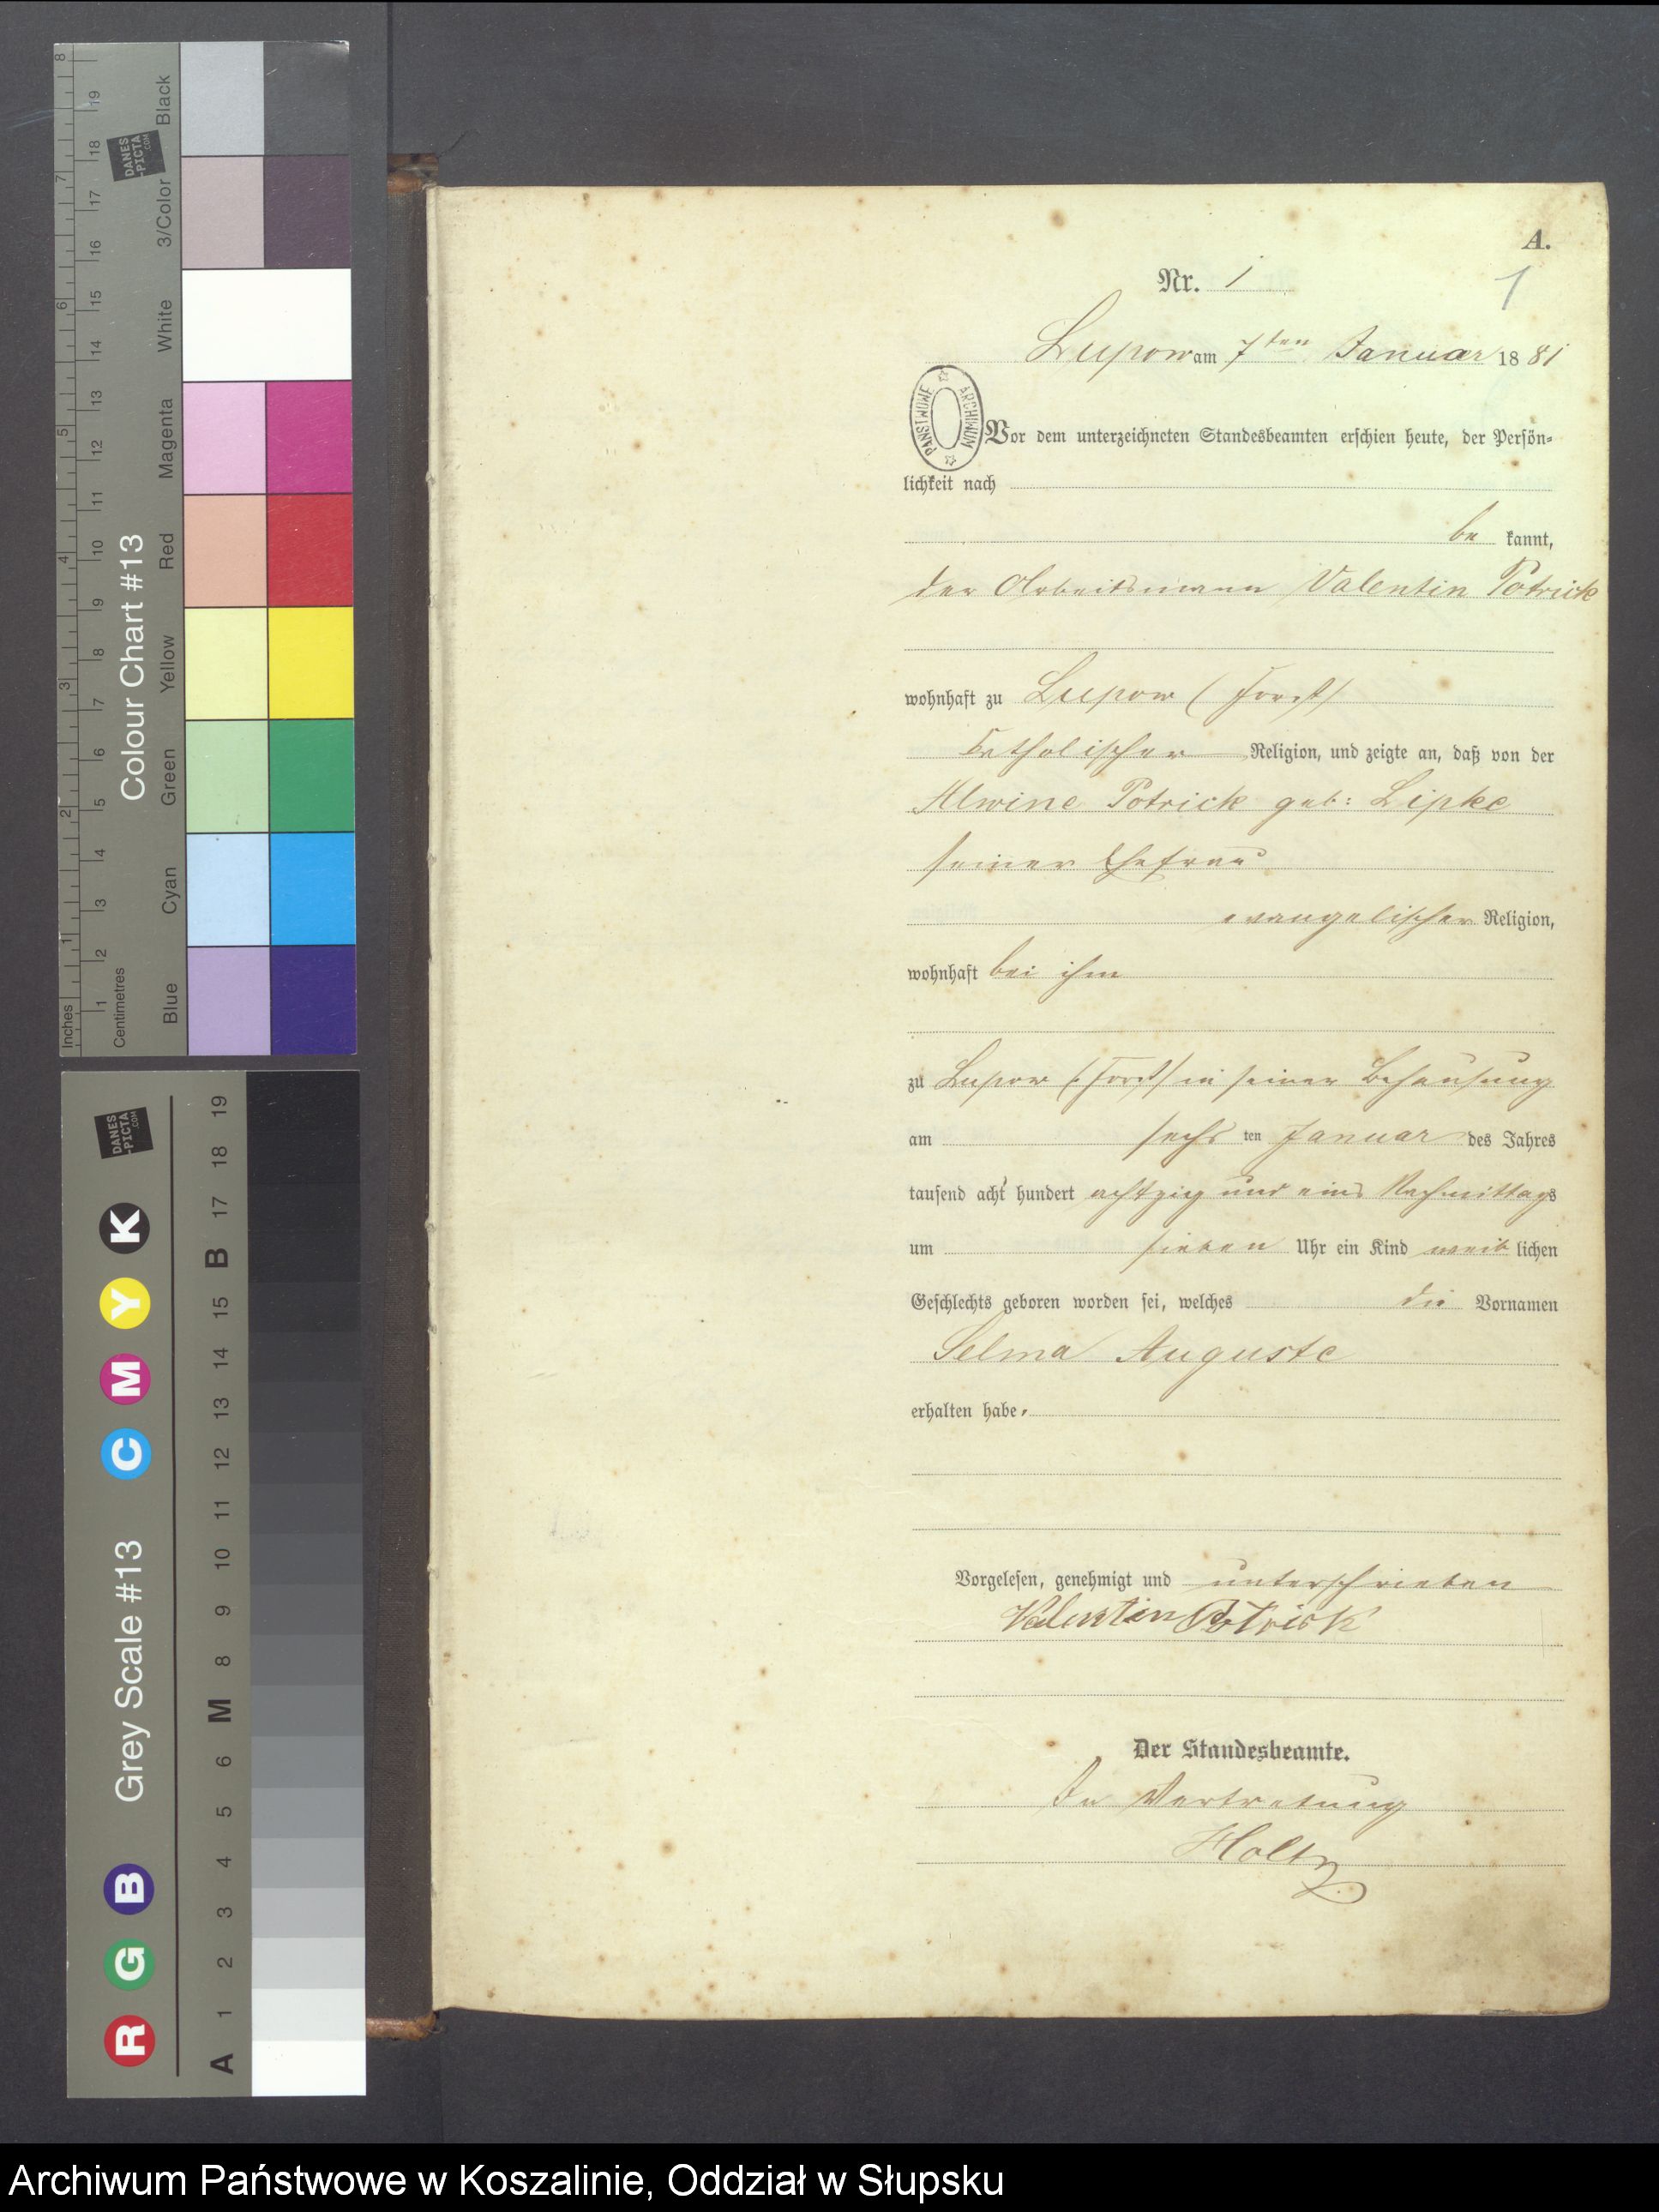 A.
Nr. 1
1
Lupow am 7ten Januar 1881
PAŃSTWOWE ARCHIWUM
Vor dem unterzeichneten Standesbeamten erschien heute, der Persön=
lichkeit nach
be kannt,
der Arbeitsmann Valentin Potrick
wohnhaft zu Lupow (Forst)
katholischer Religion, und zeigte an, daß von der
Alwine Potrick geb: Lipke
seiner Ehefrau
evangelischer Religion,
wohnhaft bei ihm
zu Lupow (Forst) in seiner Behausung
am sechs ten Januar des Jahres
tausend acht hundert achtzig und eins Nachmittags
um sieben Uhr ein Kind weib lichen
Geschlechts geboren worden sei, welches die Vornamen
Selma Auguste
erhalten habe.
Vorgelesen, genehmigt und unterschrieben
Valentin Potrick
Der Standesbeamte.
In Vertretung
Holtz
Colour Chart #13
Blue Cyan Green Yellow Red Magenta White 3/Color Black
Inches 1 2 3 4 5 6 7 8
Centimetres 1 2 3 4 5 6 7 8 9 10 11 12 13 14 15 16 17 18 19
DANES
-PICTA
.COM
Grey Scale #13
R G B C M Y K
A 1 2 3 4 5 6 M 8 9 10 11 12 13 14 15 B 17 18 19
DANES
-PICTA
.COM
Archiwum Państwowe w Koszalinie, Oddział w Słupsku